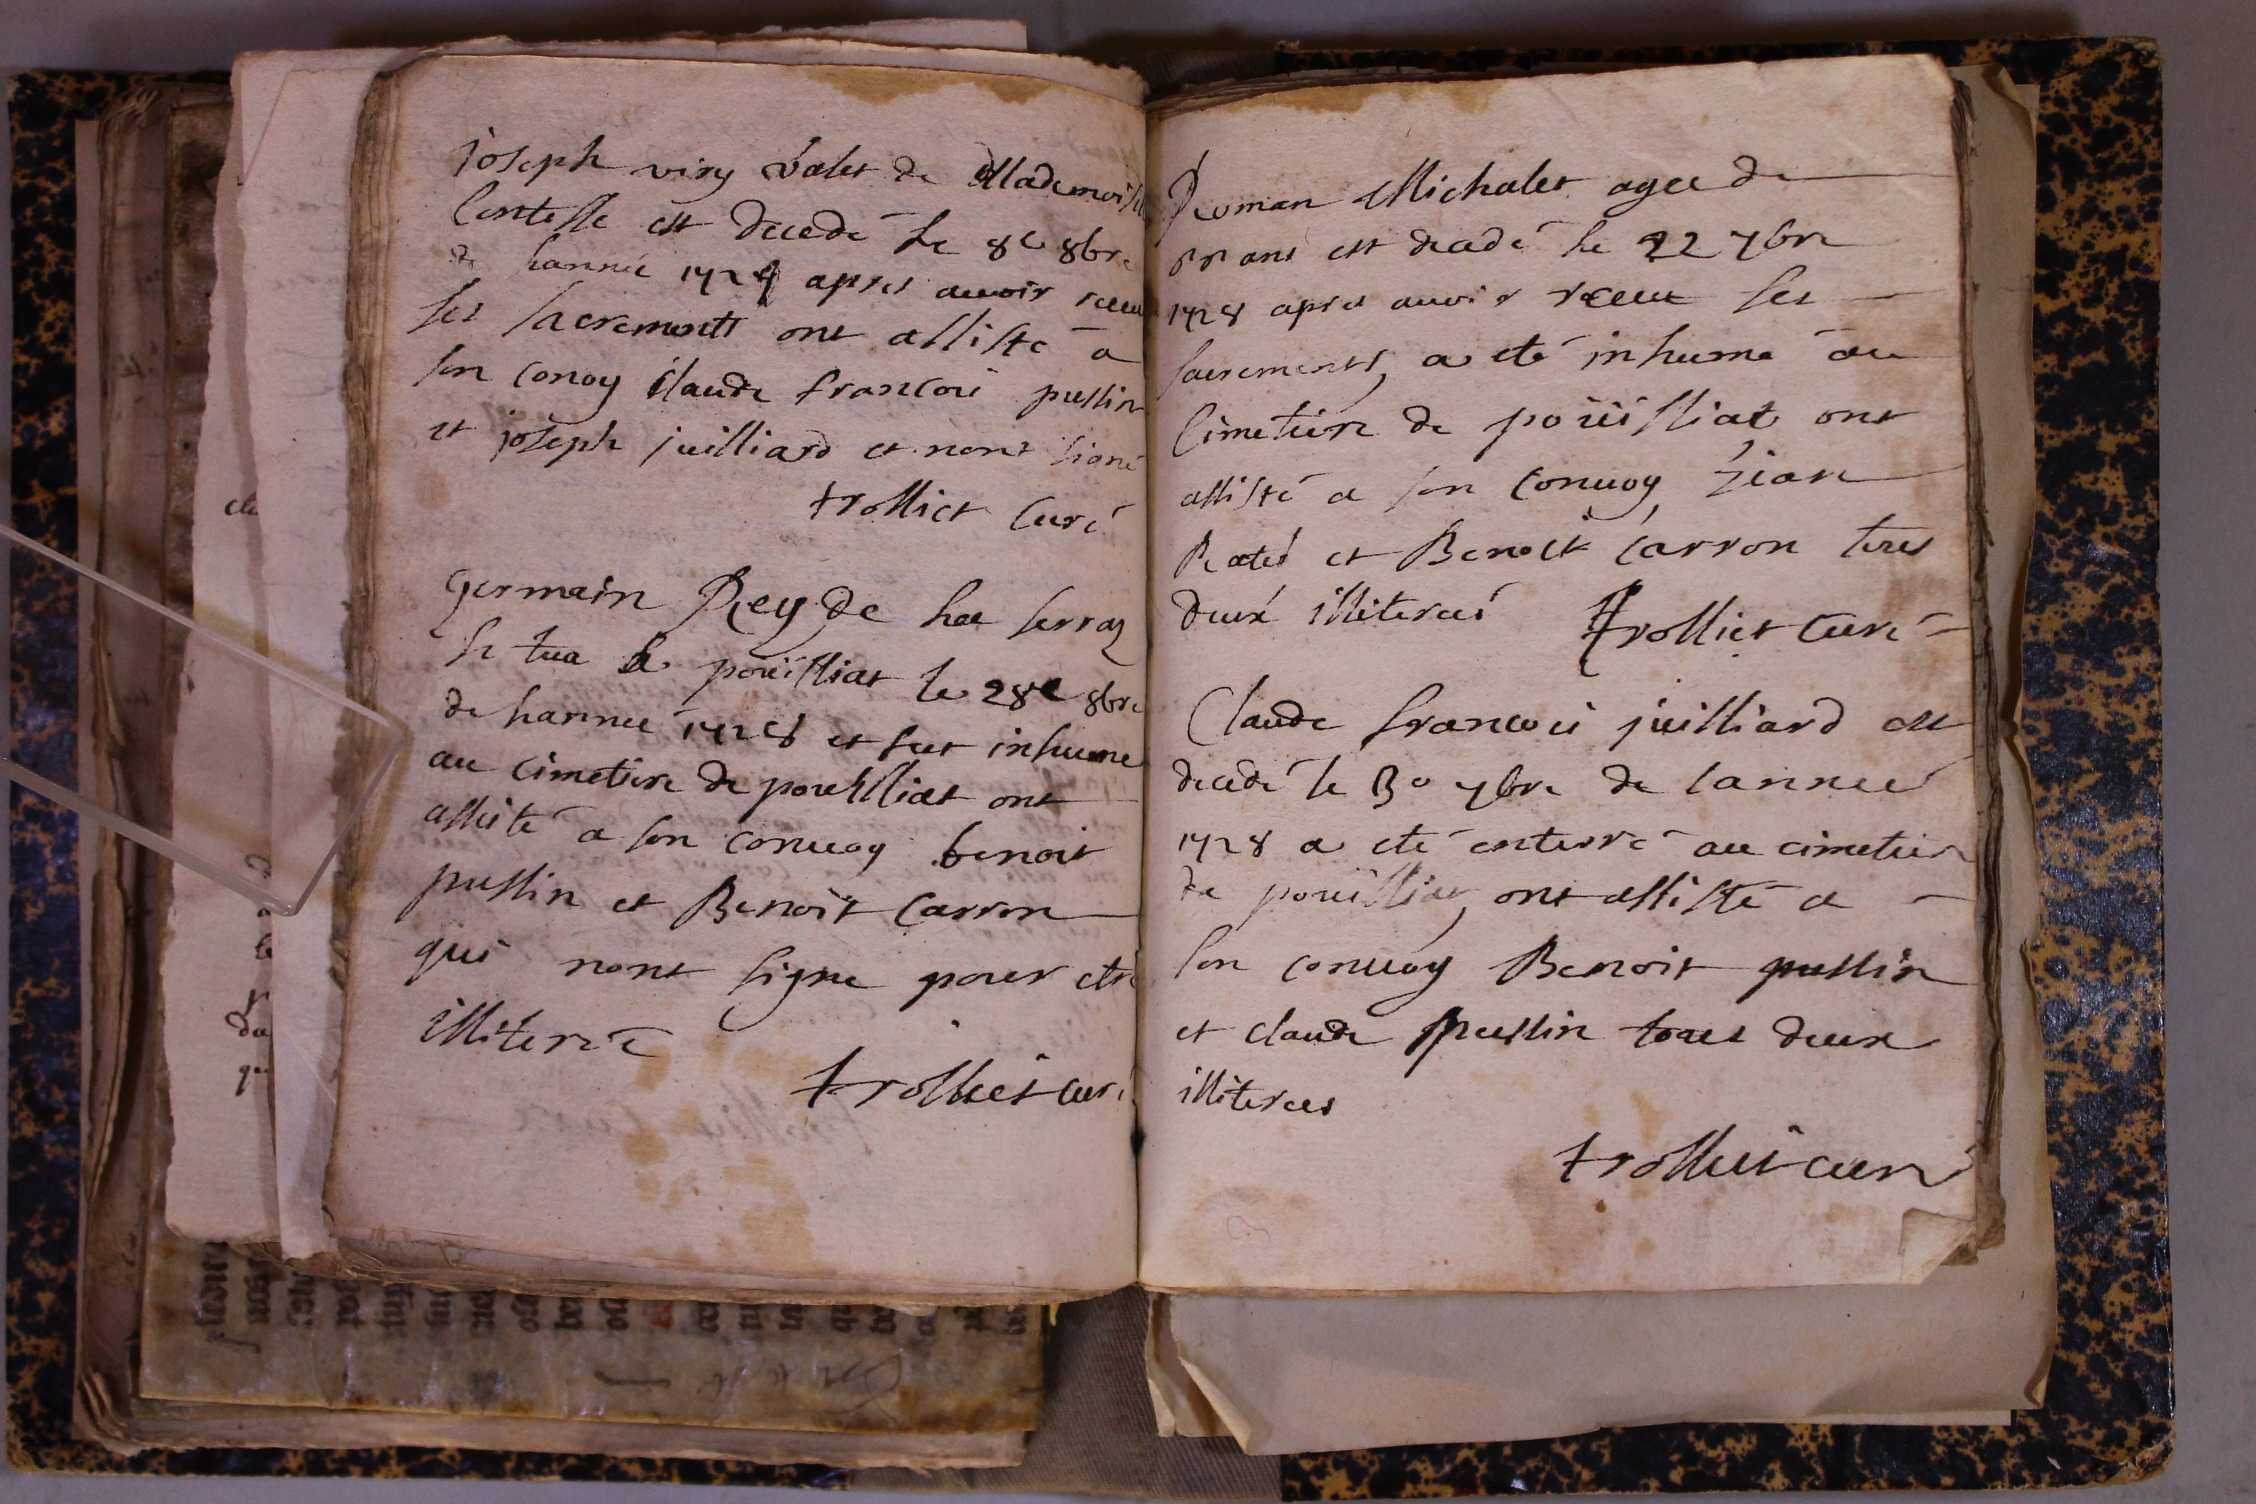 joseph viry valet de Mademoiselle
Contesse est decedé le 8e 8bre
de lannée 1728 apres auoir receu
les sacrements ont assisté a
son conuoy Claude francoi pussin
et joseph juilliard et nont signé
trolliet Curé
germain Rey de la serraz
se tua a poüilliat le 28e 8bre
de lannee 1728 et fut inhumé
au cimetiere de pouilliat ont
assité a son conuoy benoit
pussin et Benoit Carron
qui nont signe pour etre
illiteré
trolliet curé
Roman Michalet agee de
ans est decadé le 22 7bre
1728 apres auoir receu les
sacrements, a eté inhume au
Cimetiere de poüilliat ont
assisté a son Conuoy, Jean
et Benoit Carron tous
deux illiterés
trolliet Curé
Claude francois juilliard est
decedé le 30 7bre de lannee
1728 a eté enterré au cimetiere
de pouilliat, ont assisté a
son conuoy Benoit pussin
et claude pussin tous deux
illiterees
trolliet curé